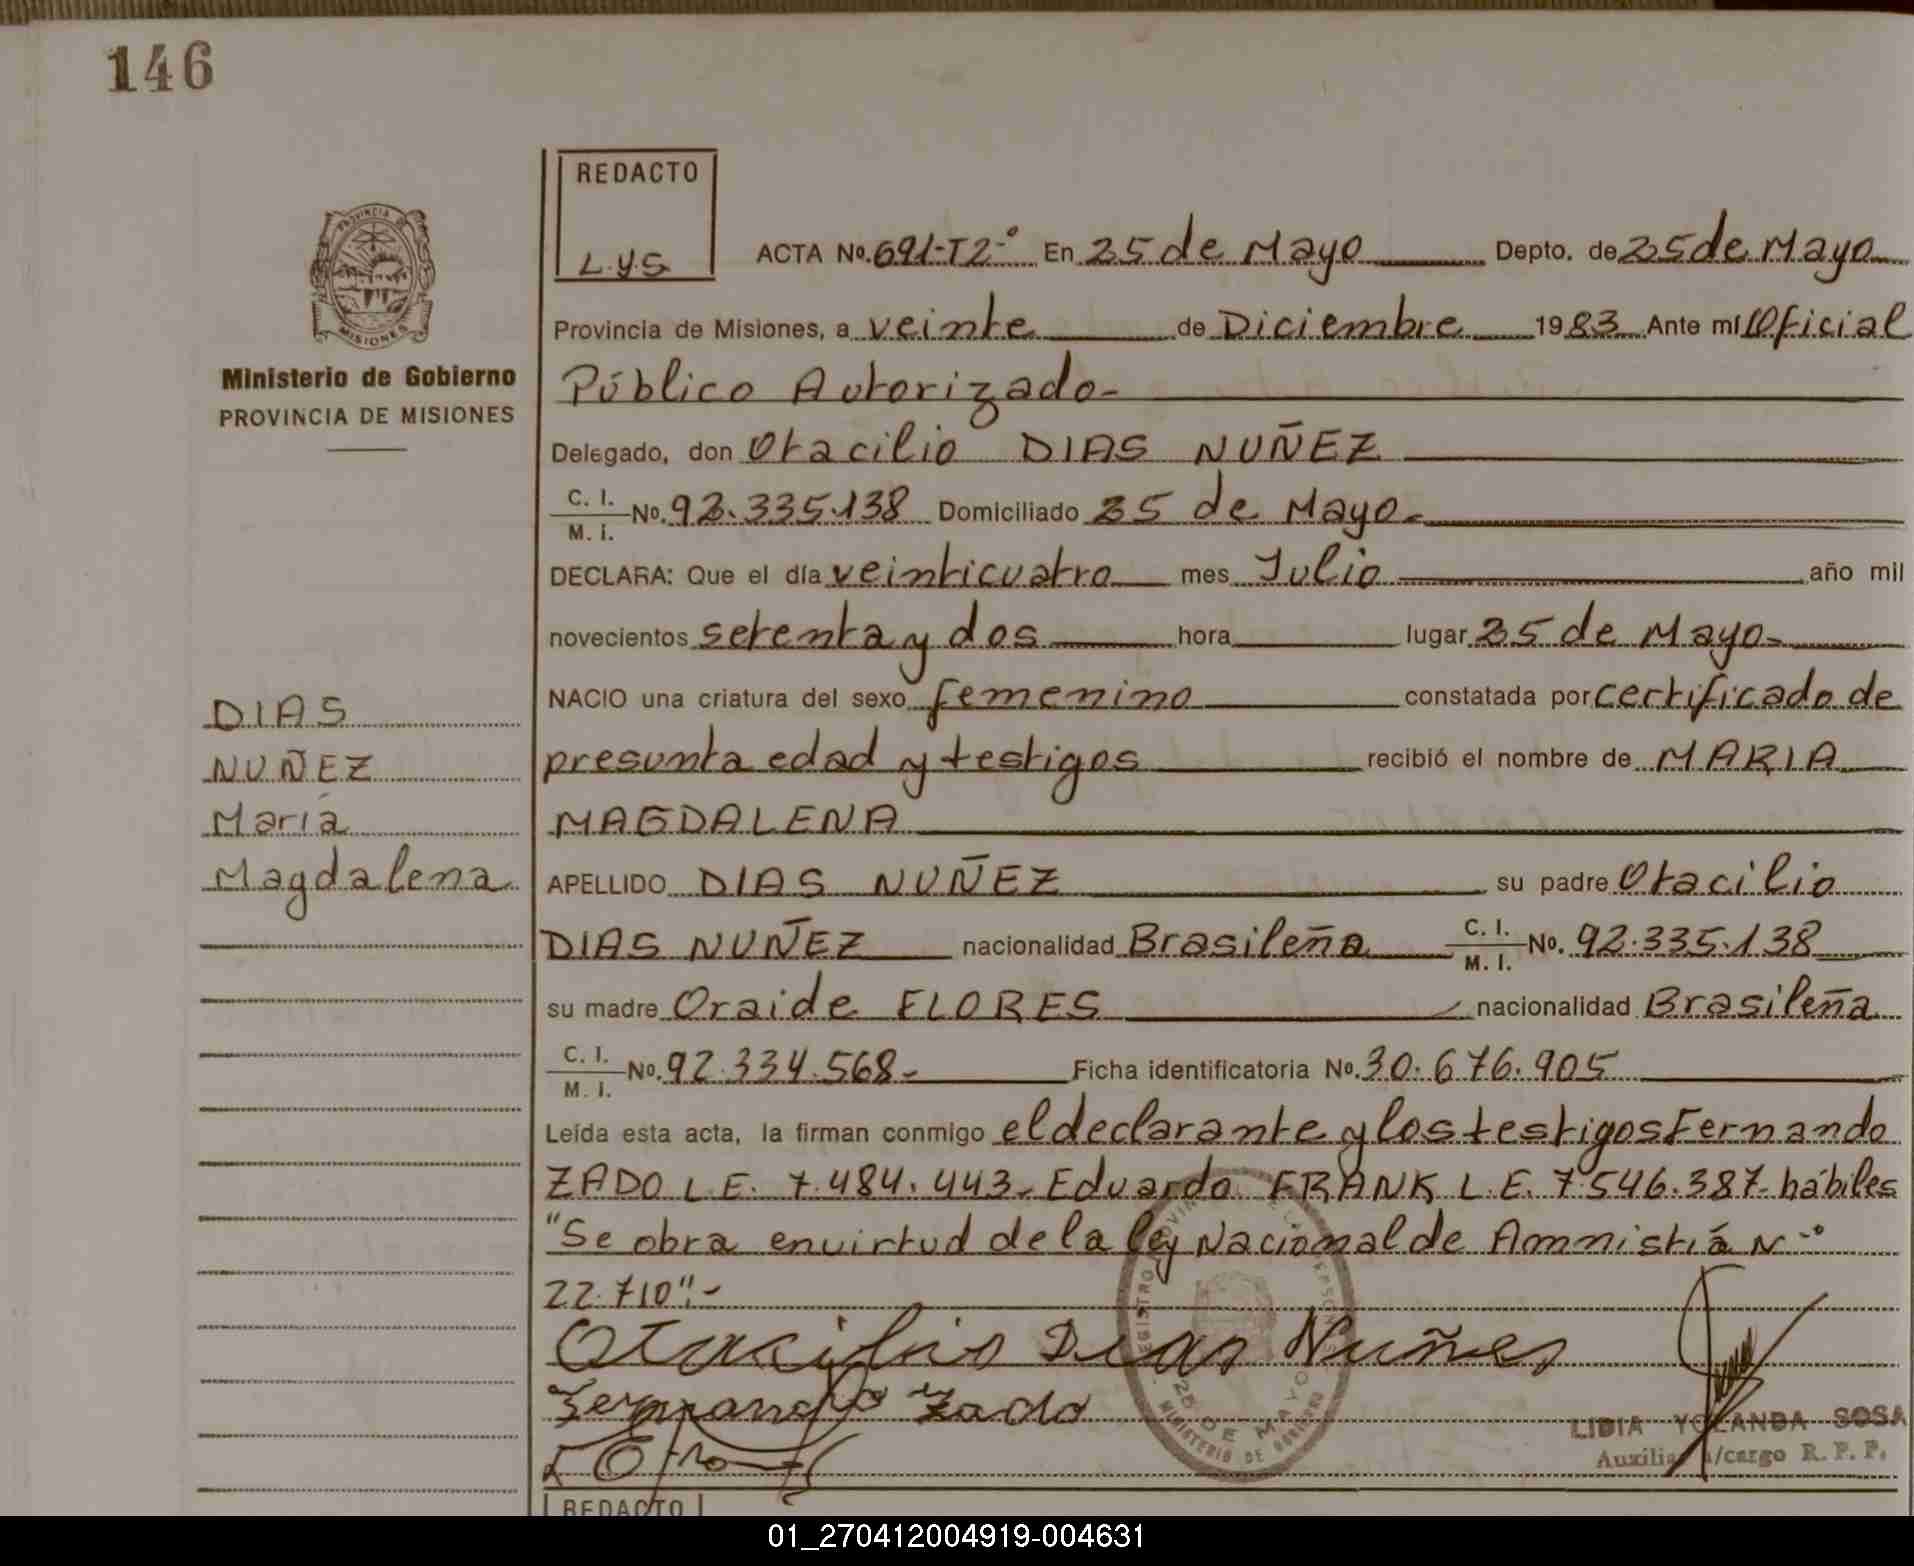 146
REDACTO
L.y.S.
ACTA No. 691-T2-º En 25 de Mayo Depto. de 25 de Mayo
Provincia de Misiones, a veinte de Diciembre 1983 Ante mí Oficial
Público Autorizado-
Delegado, don Otacilio DIAS NUÑEZ
C. I. / M. I. No. 92.335.138 Domiciliado 25 de Mayo-
DECLARA: Que el día veinticuatro mes Julio año mil
novecientos setenta y dos hora lugar 25 de Mayo-
NACIO una criatura del sexo femenino constatada por certificado de
presunta edad y testigos recibió el nombre de MARIA
MAGDALENA
APELLIDO DIAS NUÑEZ su padre Otacilio
DIAS NUÑEZ nacionalidad Brasileña C. I. / M. I. No. 92.335.138
su madre Oraide FLORES nacionalidad Brasileña
C. I. / M. I. No. 92.334.568- Ficha identificatoria No. 30.676.905
Leída esta acta, la firman conmigo el declarante y los testigos Fernando
ZADO L.E. 7.484.443- Eduardo FRANK L.E. 7.546.387- hábiles
"Se obra en virtud de la ley Nacional de Amnistiá N-º
22.710"-
Otacilio Dias Nuñes
Fernando Zado
PROVINCIA DE
MISIONES
Ministerio de Gobierno
PROVINCIA DE MISIONES
DIAS
NUÑEZ
María
Magdalena
25 DE MAYO
MINISTERIO DE GOBIERNO
LIDIA YOLANDA SOSA
Auxiliar a/cargo R. P. P.
REDACTO
01_270412004919-004631